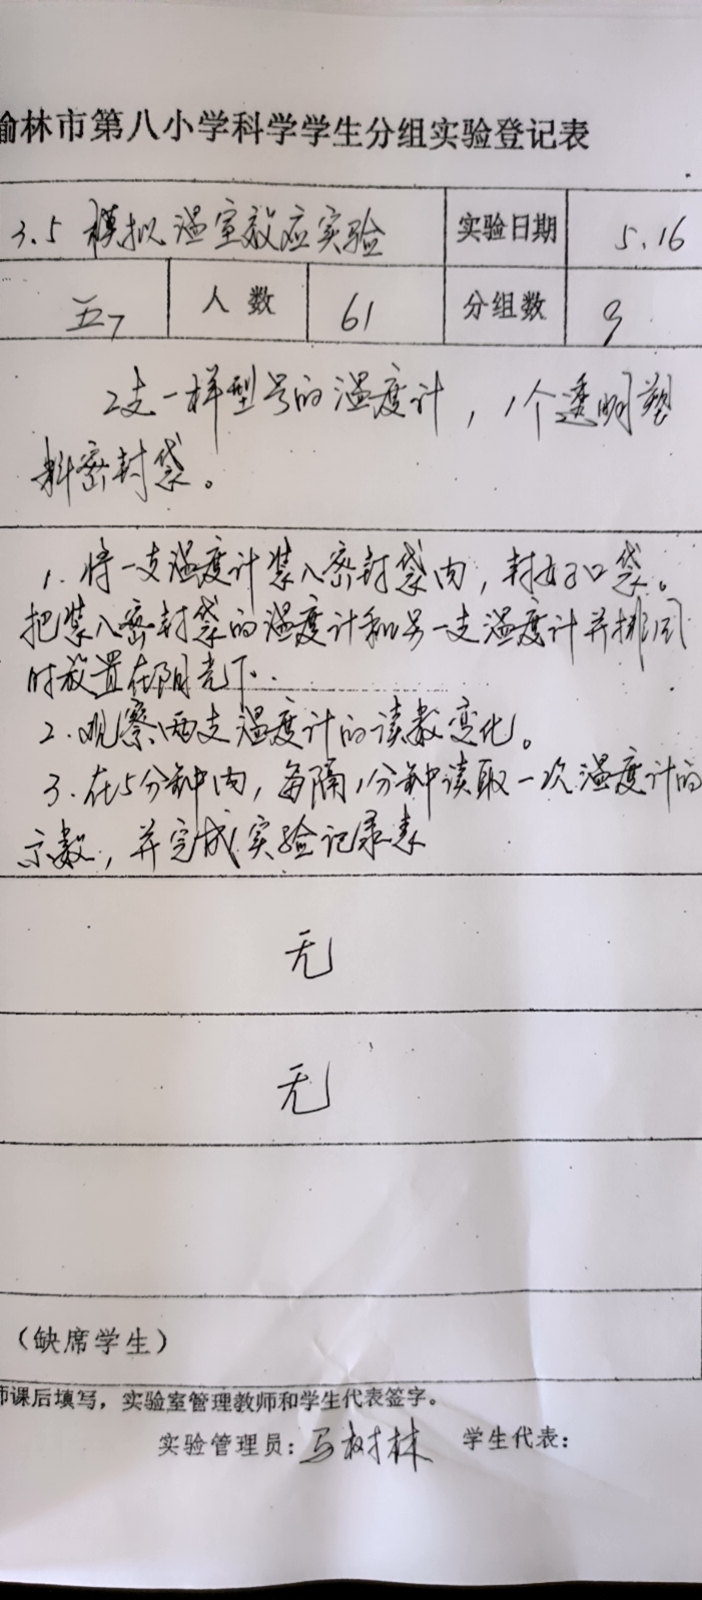 榆林市第八小学科学学生分组实验登记表
3.5 模拟温室效应实验 实验日期 5.16
五7 人数 61 分组数 9
2支一样型号的温度计，1个透明塑
料密封袋。
1. 将一支温度计装入密封袋内，封好口袋。
把装入密封袋的温度计和另一支温度计并排同
时放置在阳光下.
2. 观察两支温度计的读数变化。
3. 在5分钟内，每隔1分钟读取一次温度计的
示数，并完成实验记录表
无
无
（缺席学生）
师课后填写，实验室管理教师和学生代表签字。
实验管理员：马树林 学生代表：